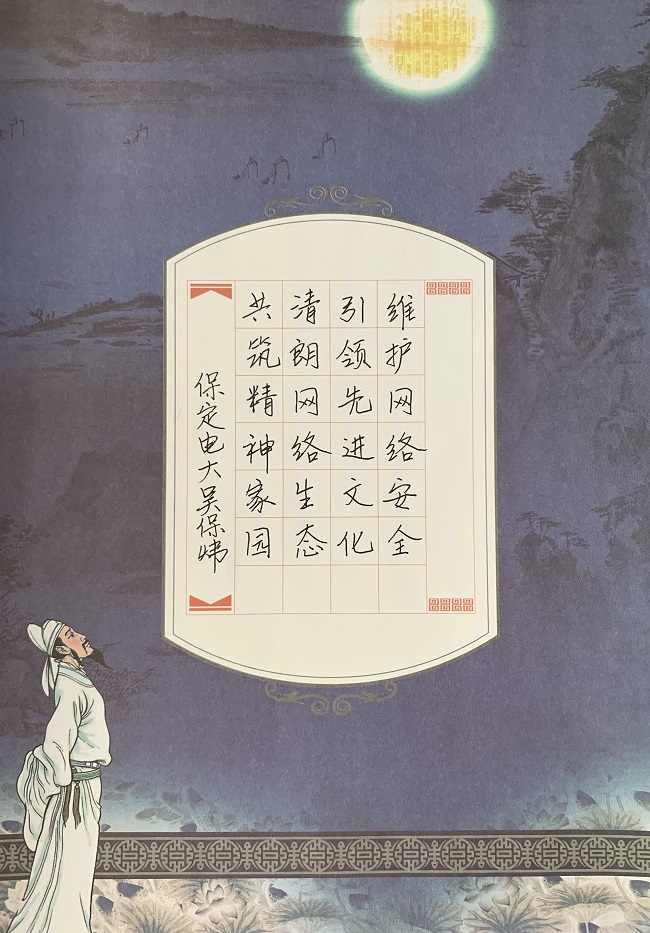 维护网络安全
引领先进文化
清朗网络生态
共筑精神家园
保定电大吴保炜